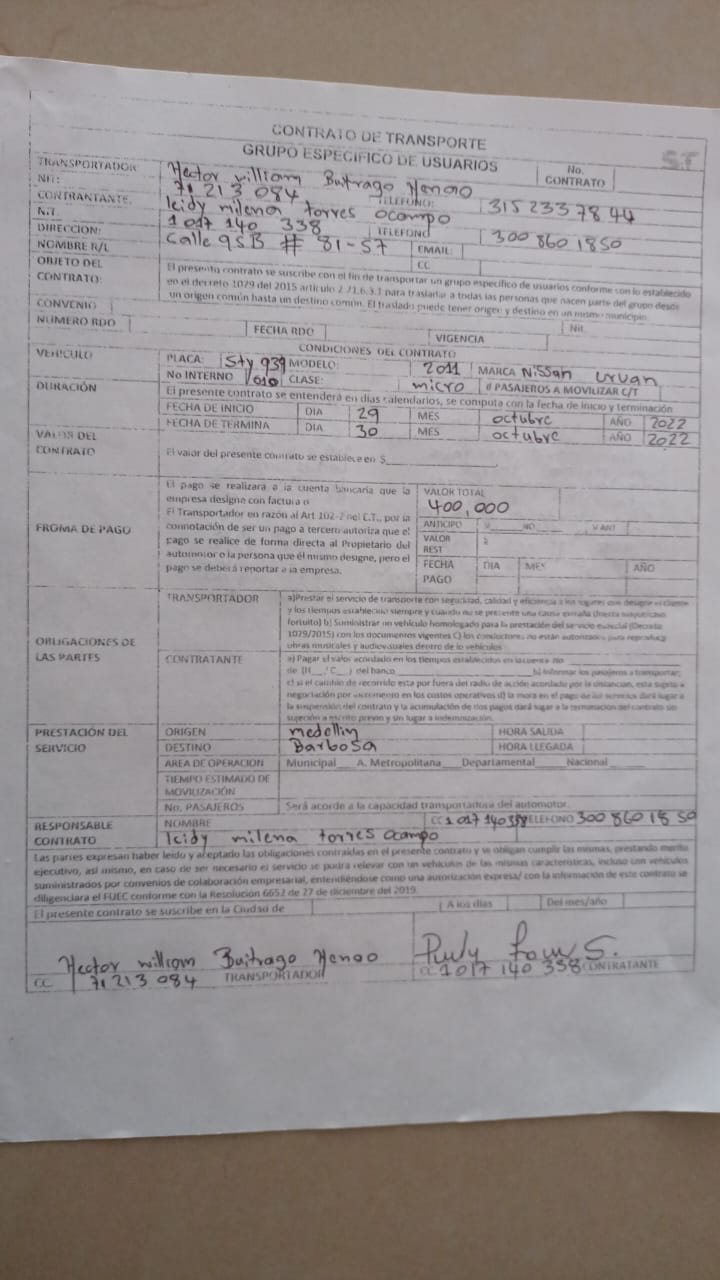 CONTRATO DE TRANSPORTE
GRUPO ESPECIFICO DE USUARIOS
S.T
TRANSPORTADOR Hector william Buitrago Henao No. CONTRATO
NIT: 71 213 084 TELEFONO: 315 2337844
CONTRANTANTE: leidy milena torres ocampo
NIT. 1 017 140 338 TELEFONO 300 860 1850
DIRECCION: calle 95B # 81-57 EMAIL:
NOMBRE R/L CC
OBJETO DEL CONTRATO: El presento contrato se suscribe con el fin de transportar un grupo especifico de usuarios conforme con lo establecido
en el decreto 1079 del 2015 articulo 2.21.6.3.1 para trasladar a todas las personas que hacen parte del grupo desde
un origen común hasta un destino común. El traslado puede tener origen y destino en un mismo municipio.
CONVENIO Nit.
NUMERO RDO FECHA RDO VIGENCIA
CONDICIONES DEL CONTRATO
VEHICULO PLACA: Sty 939 MODELO: 2011 MARCA Nissan urvan
No INTERNO 1010 CLASE: micro # PASAJEROS A MOVILIZAR C/T
DURACIÓN El presente contrato se entenderá en días calendarios, se computa con la fecha de inicio y terminación
FECHA DE INICIO DIA 29 MES octubre AÑO 2022
FECHA DE TERMINA DIA 30 MES octubre AÑO 2022
VALOS DEL CONTRATO El valor del presente contrato se establece en $
FROMA DE PAGO El pago se realizara a la cuenta bancaria que la
empresa designe con factura o
El Transportador en razón al Art 102-2 del C.T., por la
connotación de ser un pago a tercero autoriza que el
pago se realice de forma directa al Propietario del
automotor o la persona que él mismo designe, pero el
pago se deberá reportar a la empresa.
VALOR TOTAL
400,000
ANTICIPO NO V ANT
VALOR REST
FECHA PAGO DIA MES AÑO
OBLIGACIONES DE LAS PARTES
TRANSPORTADOR a)Prestar el servicio de transporte con seguridad, calidad y eficiencia a los lugares que designe el cliente
y los tiempos establecido siempre y cuando no se presente una causa extraña
fortuito) b) Suministrar un vehículo homologado para la prestación del servicio especial (Decreto
1079/2015) con los documentos vigentes C) los conductores no están autorizados para reproducir
obras musicales y audiovisuales dentro de lo vehículos
CONTRATANTE a) Pagar el valor acordado en los tiempos establecidos en la cuenta No
de (H__ C__) del banco b) Informar los pasajeros a transportar;
c) si el cambio de recorrido esta por fuera del radio de acción acordado por la distancian, esta sujeto a
negociación por incremento en los costos operativos d) la mora en el pago de los servicios dará lugar a
la suspensión del contrato y la acumulación de dos pagos dará lugar a la terminación del contrato sin
sujeción a escrito previo y sin lugar a indemnización.
PRESTACIÓN DEL SERVICIO
ORIGEN medellin HORA SALIDA
DESTINO Barbosa HORA LLEGADA
AREA DE OPERACIÓN Municipal A. Metropolitana Departamental Nacional
TIEMPO ESTIMADO DE MOVILIZACIÓN
No. PASAJEROS Será acorde a la capacidad transportadora del automotor.
RESPONSABLE CONTRATO NOMBRE CC 1 017 140 338 TELEFONO 300 860 18 50
leidy milena torres ocampo
Las partes expresan haber leído y aceptado las obligaciones contraídas en el presente contrato y se obligan cumplir las mismas, prestando merito
ejecutivo, así mismo, en caso de ser necesario el servicio se podrá relevar con un vehículos de las mismas características, incluso con vehículos
suministrados por convenios de colaboración empresarial, entendiéndose como una autorización expresa/ con la información de este contrato se
diligenciara el FUEC conforme con la Resolución 6652 de 27 de diciembre del 2019.
El presente contrato se suscribe en la Ciudad de A los días Del mes/año
Hector william Buitrago Henao
CC 71 213 084 TRANSPORTADOR
CC 1 017 140 338 CONTRATANTE